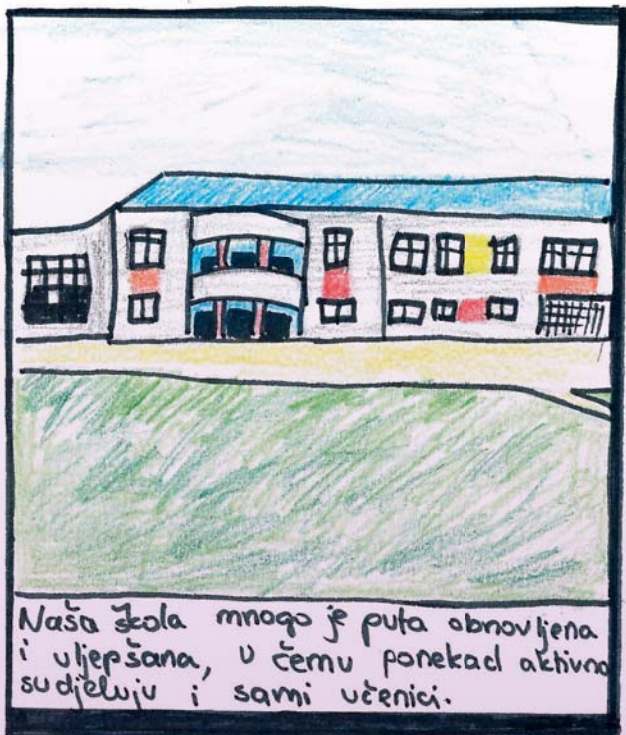 Naša škola mnogo je puta obnovljena
i uljepšana, u čemu ponekad aktivno
sudjeluju i sami učenici.